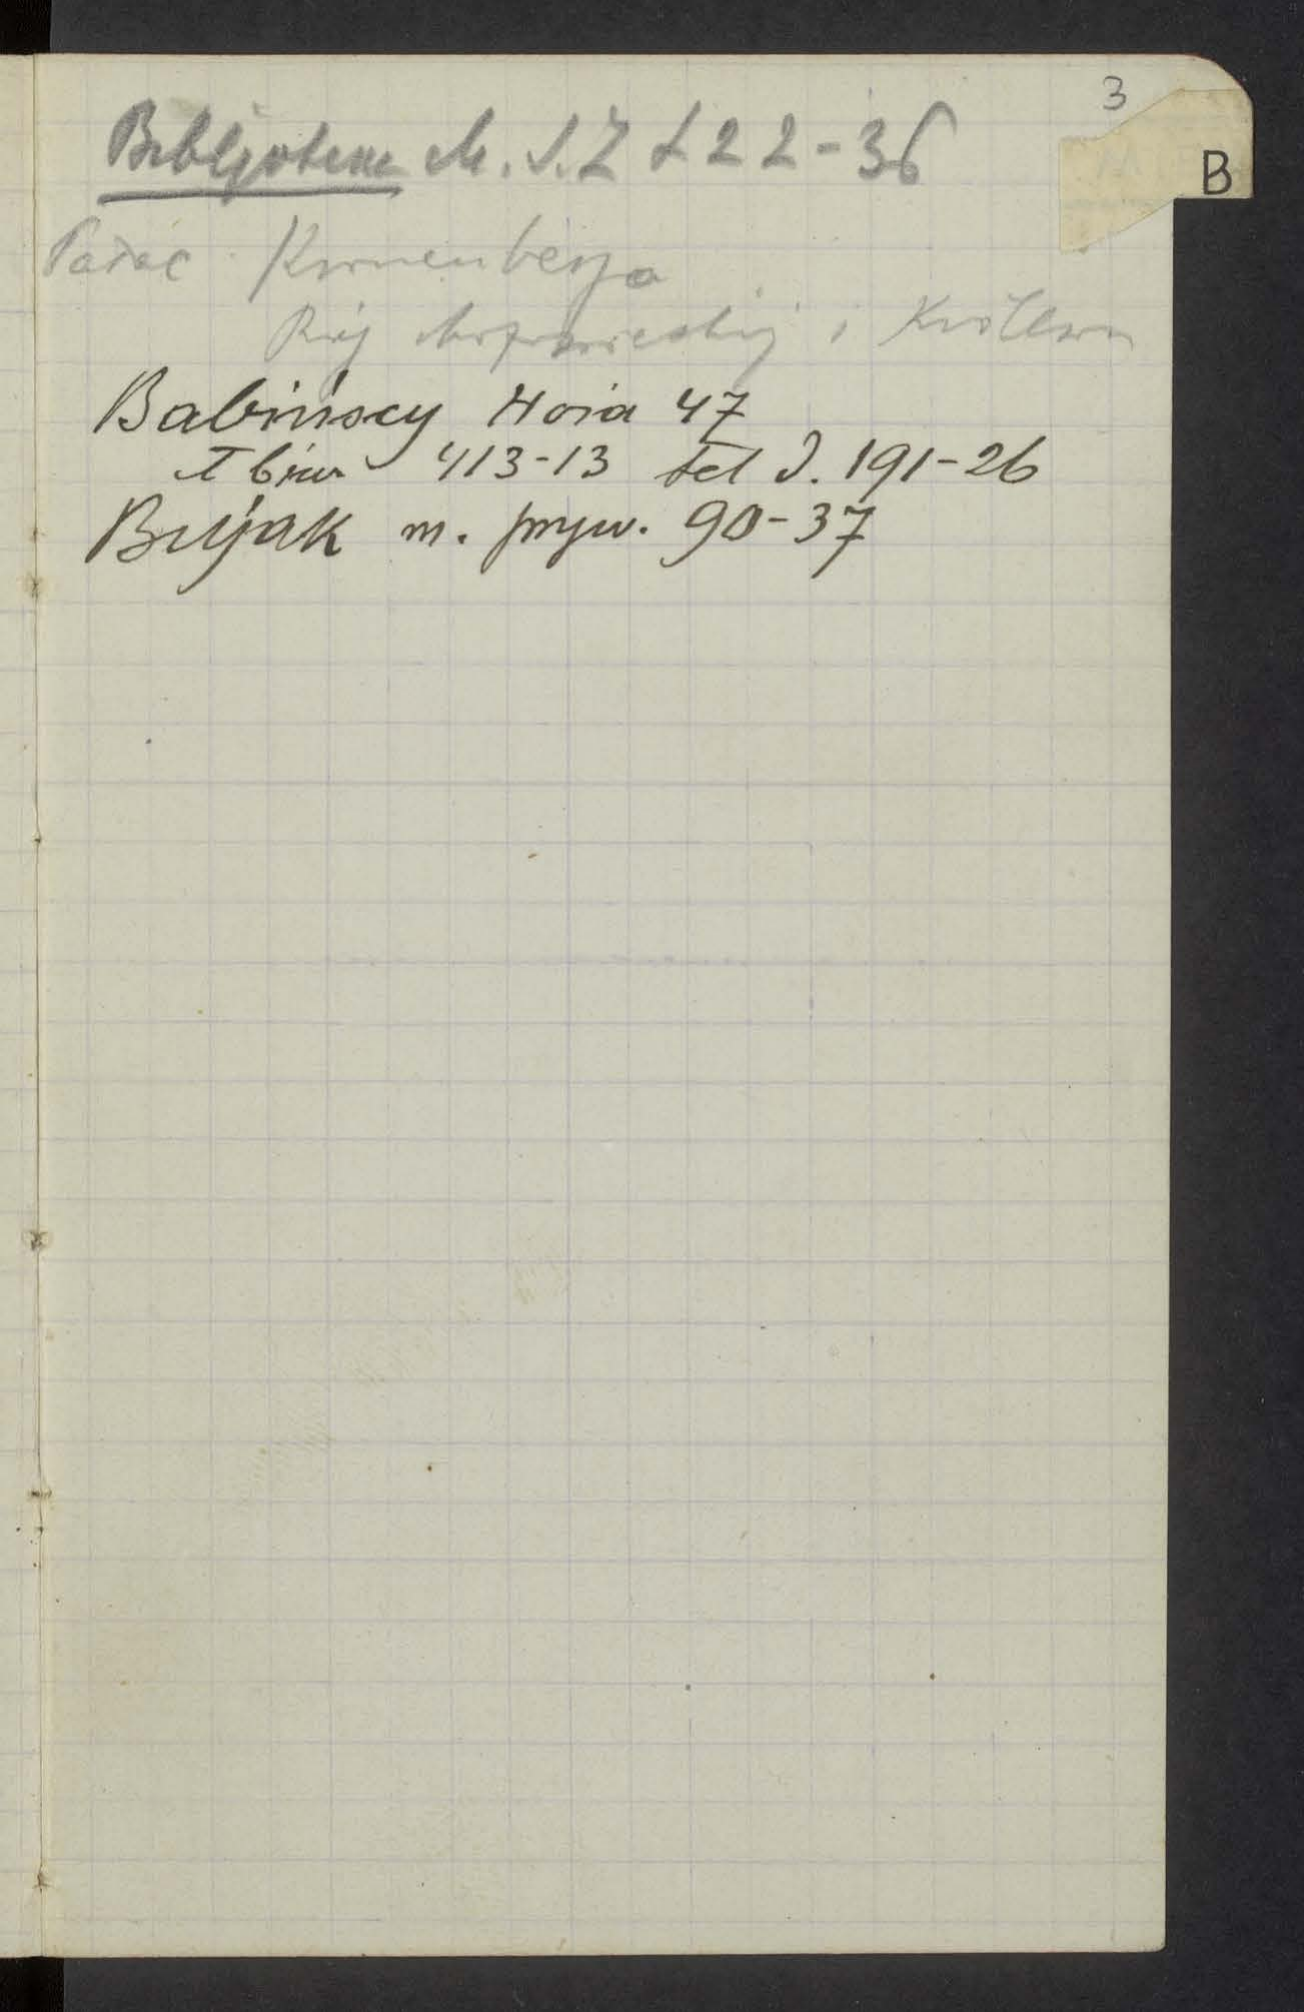 3
B
Bibljoteka M.S.Z 222-36
Pałac Kronenberga
Róg Mazowieckiej i Królewsk
Babińscy Hoża 47
T biur 413-13 tel d. 191-26
Biljak m. pryw. 90-37